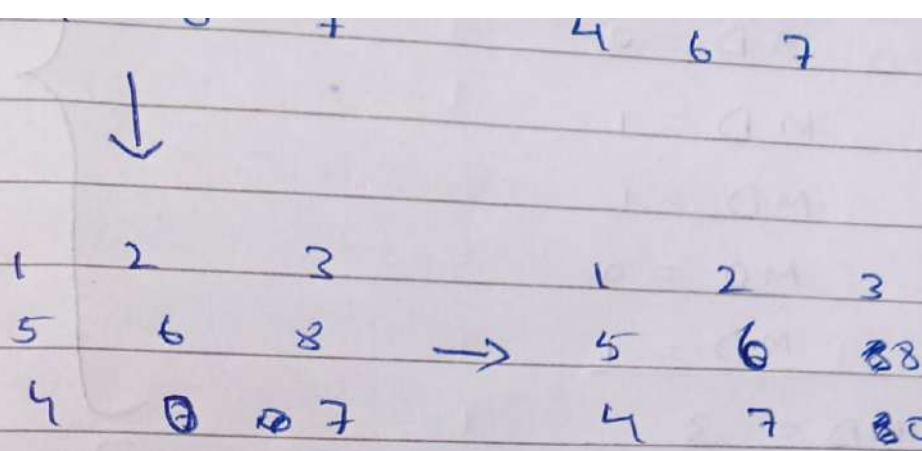 4 6 7
↓
1 2 3 1 2 3
5 6 8 → 5 6 8
4 0 7 4 7 0